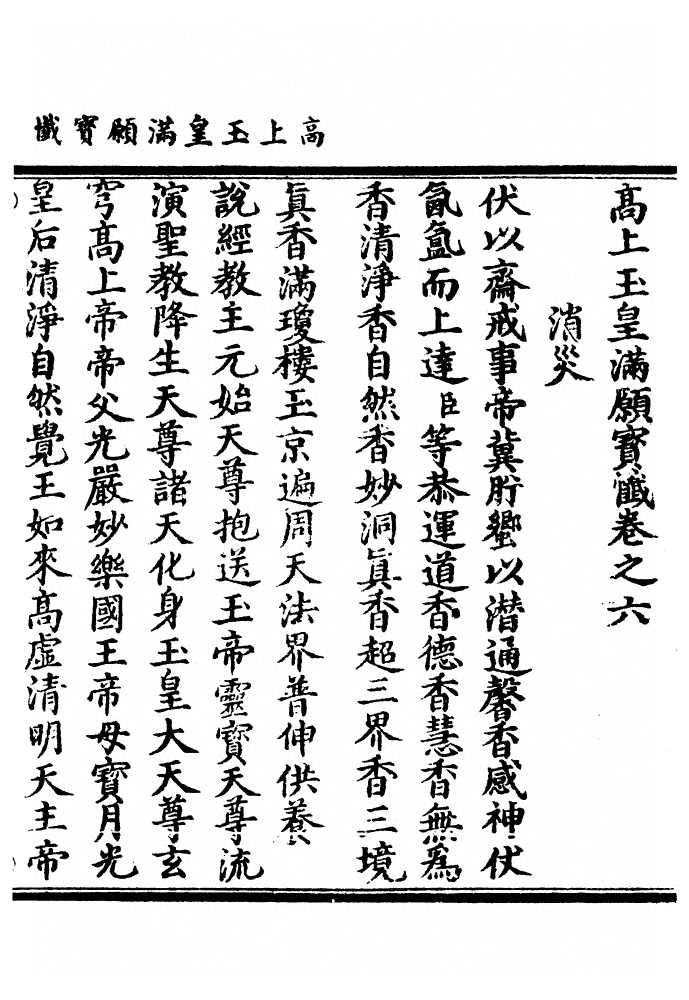 高上玉皇滿願寶懺
高上玉皇滿願寶懺卷之六
消災
伏以齋戒事帝冀肸蠁以潛通馨香感神伏
氤氳而上達臣等恭運道香德香慧香無為
香清淨香自然香妙洞真香超三界香三境
真香滿瓊樓玉京遍周天法界普伸供養
說經教主元始天尊抱送玉帝靈寶天尊流
演聖教降生天尊諸天化身玉皇大天尊玄
穹高上帝帝父光嚴妙樂國王帝母寶月光
皇后清淨自然覺王如來高虛清明天主帝